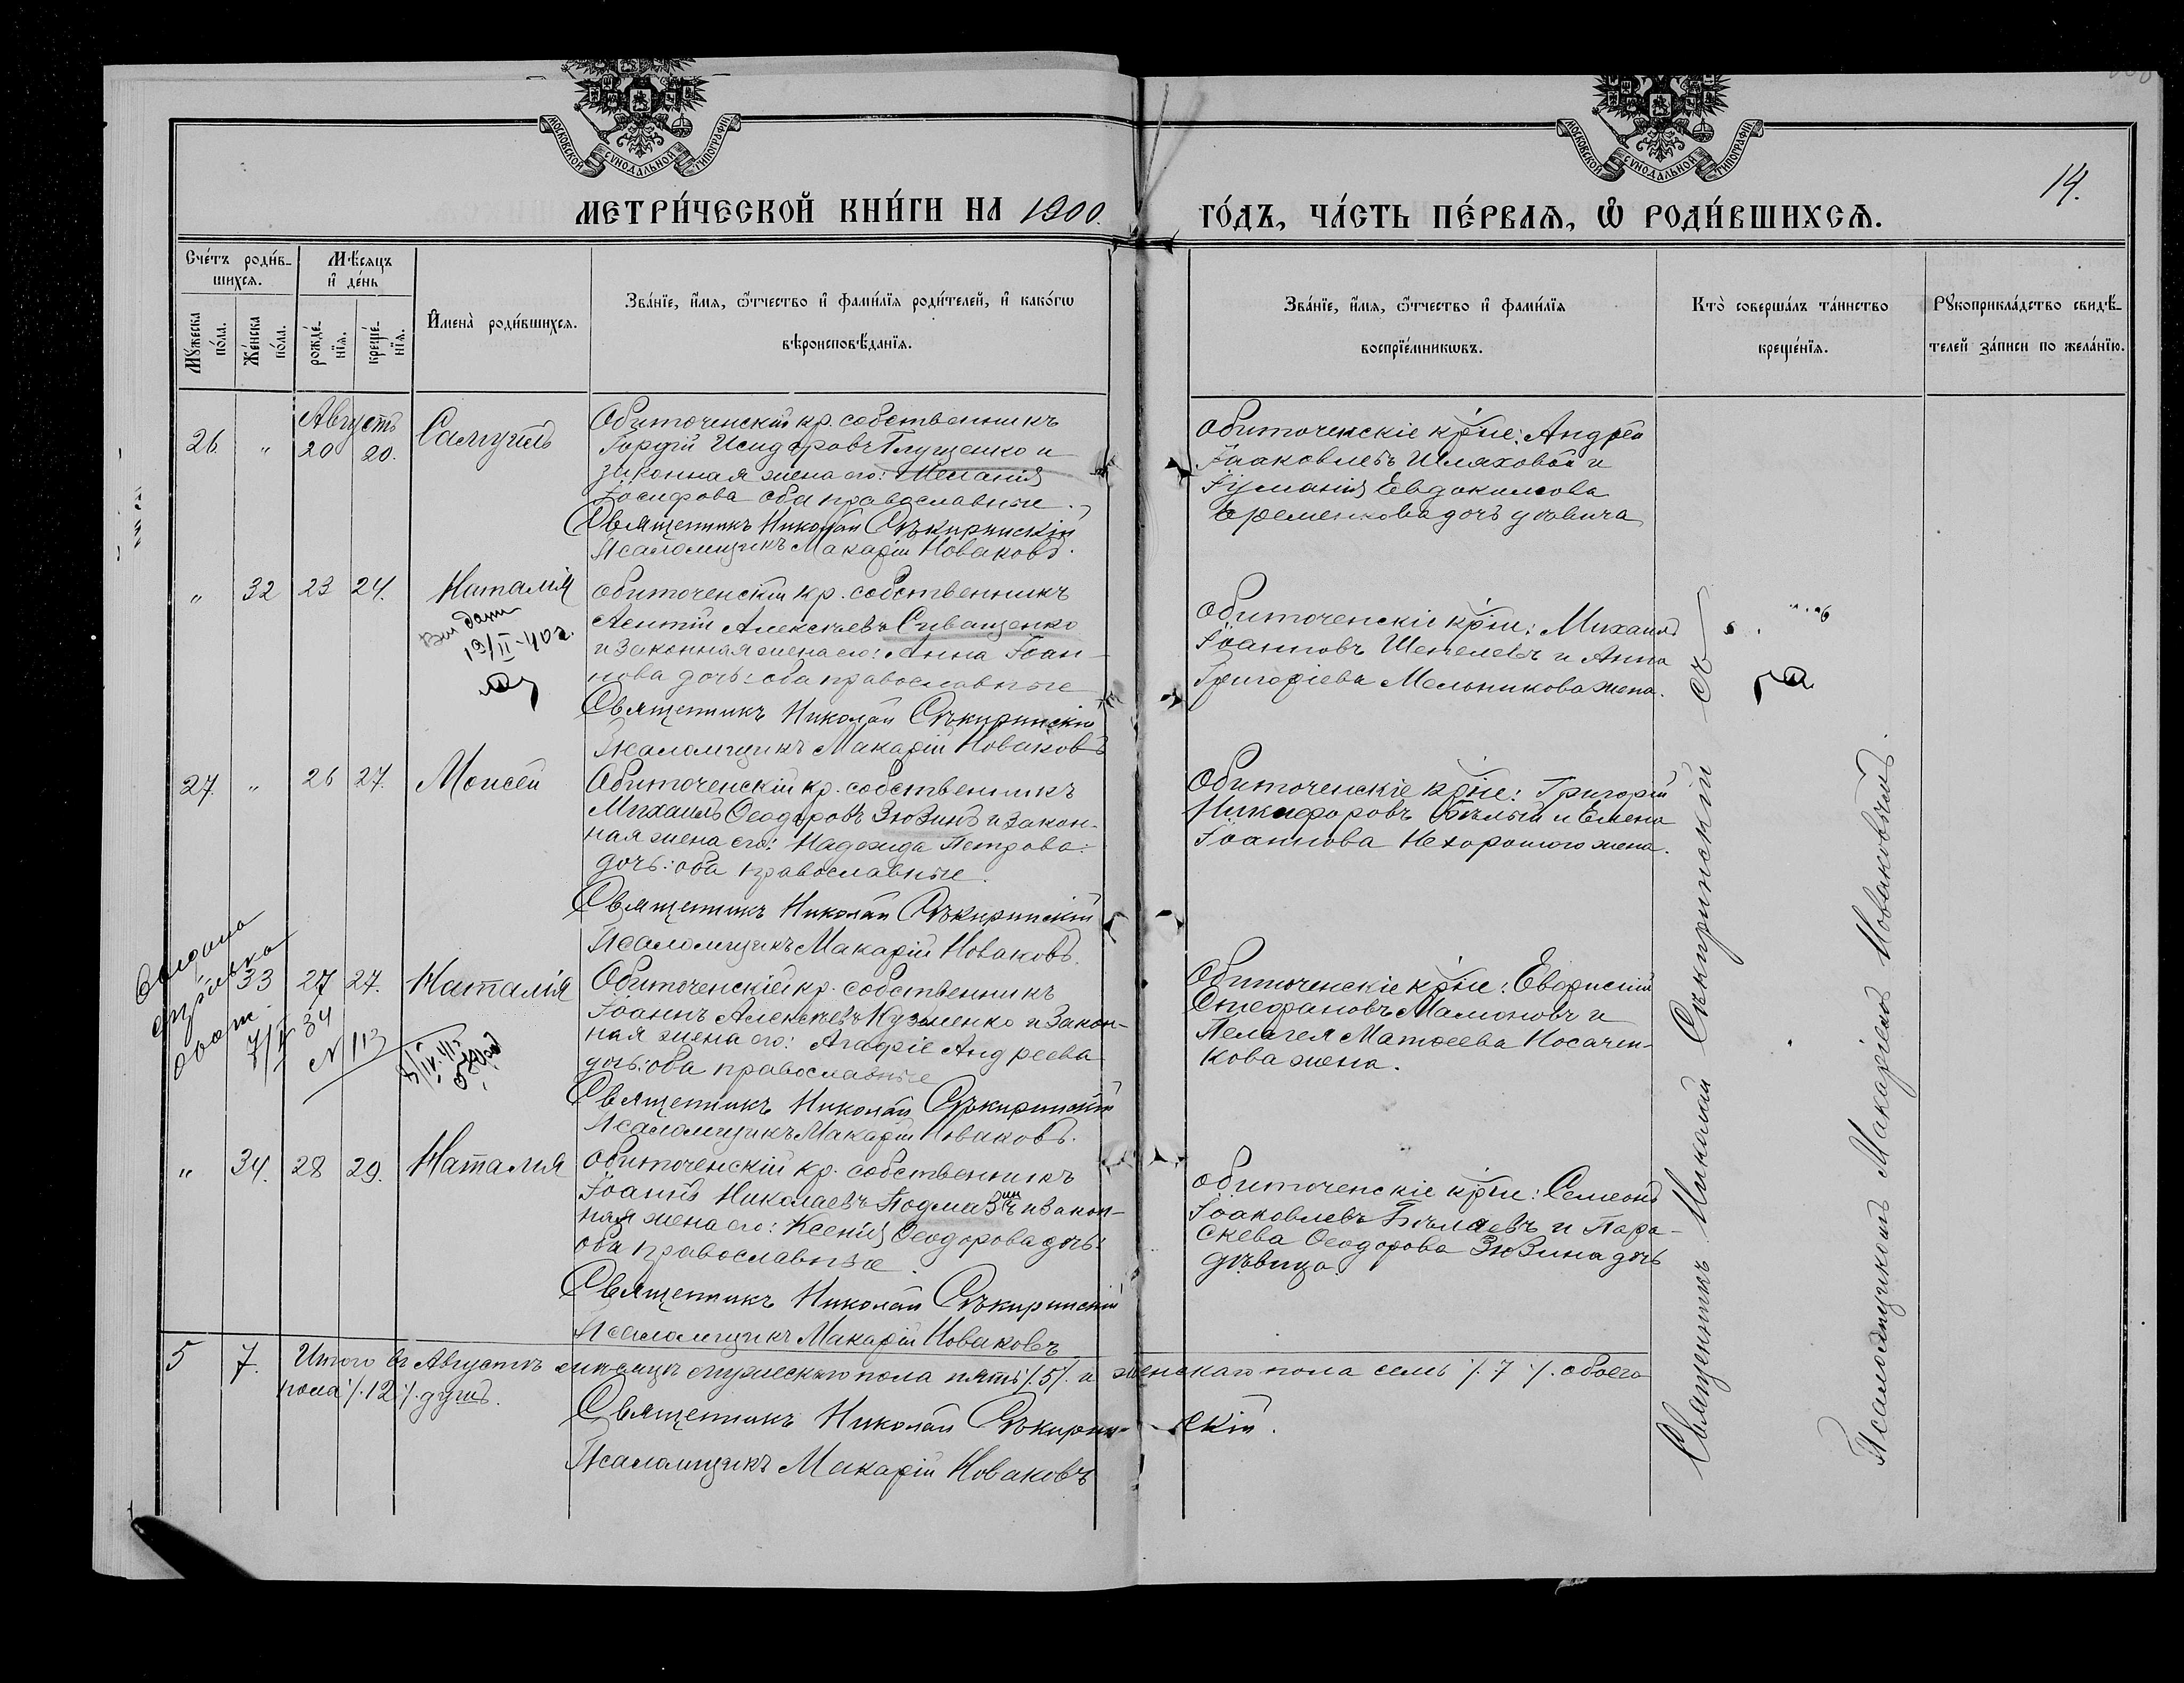 МОСКОВСКОЙ СѴНОДАЛЬНОЙ ТИПОГРАФІИ
МОСКОВСКОЙ СѴНОДАЛЬНОЙ ТИПОГРАФІИ
14.
МЕТРИ́ЧЕСКОЙ КНИ́ГИ НА 1900.
ГО́ДЪ, ЧА́СТЬ ПЕ́РВАЯ, Ѽ РОДИ́ВШИХСЯ.
Сче́тъ роди́в-
шихсѧ.
Мѣ́сяцъ
и҆ де́нь
Мꙋ́жеска
по́ла.
Же́нска
по́ла.
рожде́-
нїѧ.
креще́-
нїѧ.
И҆мена̀ роди́вшихсѧ.
Зва́нїе, и҆́мѧ, ѻ҆́тчество и҆ фами́лїѧ роди́телей, и҆ како́гѡ
вѣроисповѣ́данїѧ.
Зва́нїе, и҆́мѧ, ѻ҆́тчество и҆ фами́лїѧ
воспрїе́мникѡвъ.
Кто̀ соверша́лъ та́инство
креще́нїѧ.
Рꙋкоприкла́дство свидѣ́-
телей за́писи по жела́нїю.
Августъ
26. " 20 20. Самуилъ
Обиточенскій кр. собственникъ
Гордій Исидоровъ Глущенко и
законная жена его: Меланія
Іосифова оба православные.
Священникъ Николай Сѣкиринскій
Псаломщикъ Макарій Новаковъ.
Обиточенскіе кр–не: Андрей
Іаковлевъ Шляховой и
Іуліанія Евдокимова
Еременкова дочь дѣвица
" 32 23 24. Наталія
19/II-40г.
Обиточенскій кр. собственникъ
Леонтій Алексѣевъ Сиващенко
и законная жена его: Анна Іоан-
нова дочь: оба православные
Священникъ Николай Сѣкиринскій
Псаломщикъ Макарій Новаковъ
Обиточенскіе кр–не: Михаилъ
Іоанновъ Шепелевъ и Анна
Григоріева Мельникова жена.
27. " 26 27. Моисей
Обиточенскій кр. собственникъ
Михаилъ Ѳеодоровъ Зюзинъ и закон-
ная жена его: Надежда Петрова
дочь: оба православные.
Священникъ Николай Сѣкиринскій
Псаломщикъ Макарій Новаковъ.
Обиточенскіе кр–не: Григорій
Никифоровъ Бѣлый и Елена
Іоаннова Нехорошого жена.
33 27 27. Наталія
7/I 34
N 113
Обиточенскій кр. собственникъ
Іоаннъ Алексѣевъ Кузменко и закон-
ная жена его: Агафіе Андреева
дочь: оба православные
Священникъ Николай Сѣкиринскій
Псаломщикъ Макарій Новаковъ.
Обиточенскіе кр–не:
Стефановъ Мамоновъ и
Пелагея Матѳеева Носачен-
кова жена.
" 34. 28 29. Наталия
Обиточенскій кр. собственникъ
Іоаннъ Николаевъ и закон-
ная жена его: Ксенія Ѳеодорова дочь:
оба православные.
Священникъ Николай Сѣкиринскій
Псаломщикъ Макарій Новаковъ
Обиточенскіе кр–не: Симеонъ
Іоаковлевъ Бѣляевъ и Пара-
скева Ѳеодорова Зюзина дочь
дѣвица.
5 7. Итого въ Августѣ мѣсяцѣ мужескаго пола пять /. 5 /. и женскаго пола семь /. 7 /. обоего
пола /. 12 /. душъ.
Священникъ Николай Сѣкирин-скій.
Псаломщикъ Макарій Новаковъ
Священникъ Николай Сѣкиринскій съ
Псаломщикомъ Макаріемъ Новаковымъ.